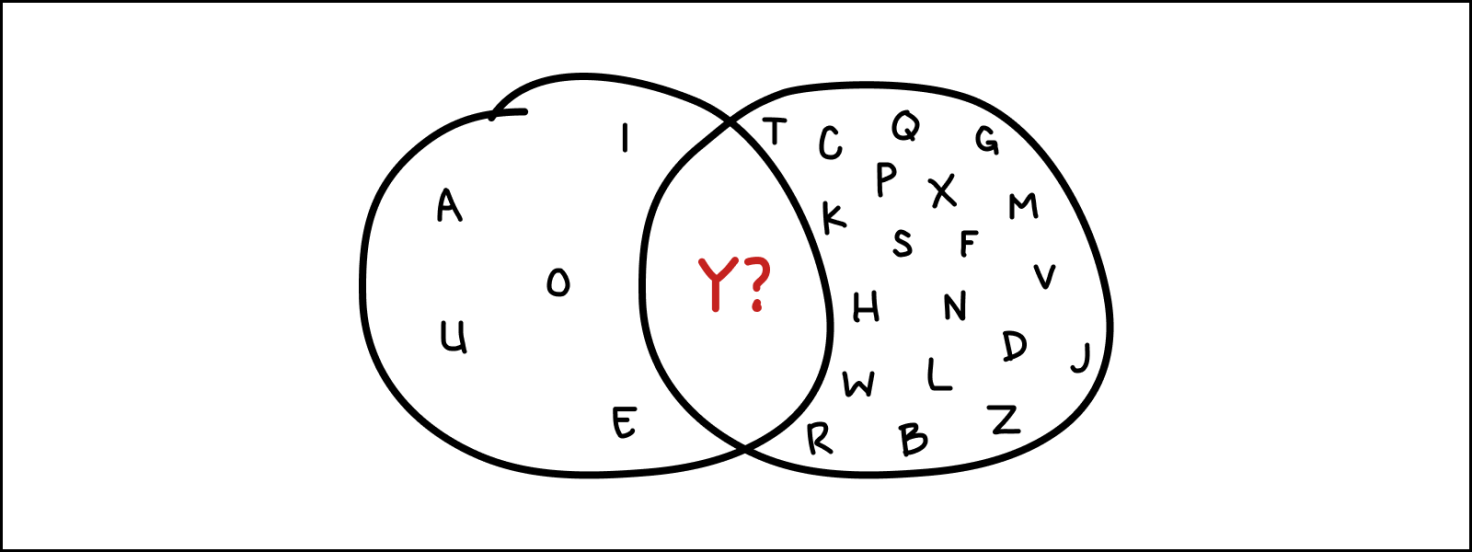 I
A
O
U
E
Y?
T C Q G
P X M
K S F
V
H N
D J
W L
R B Z